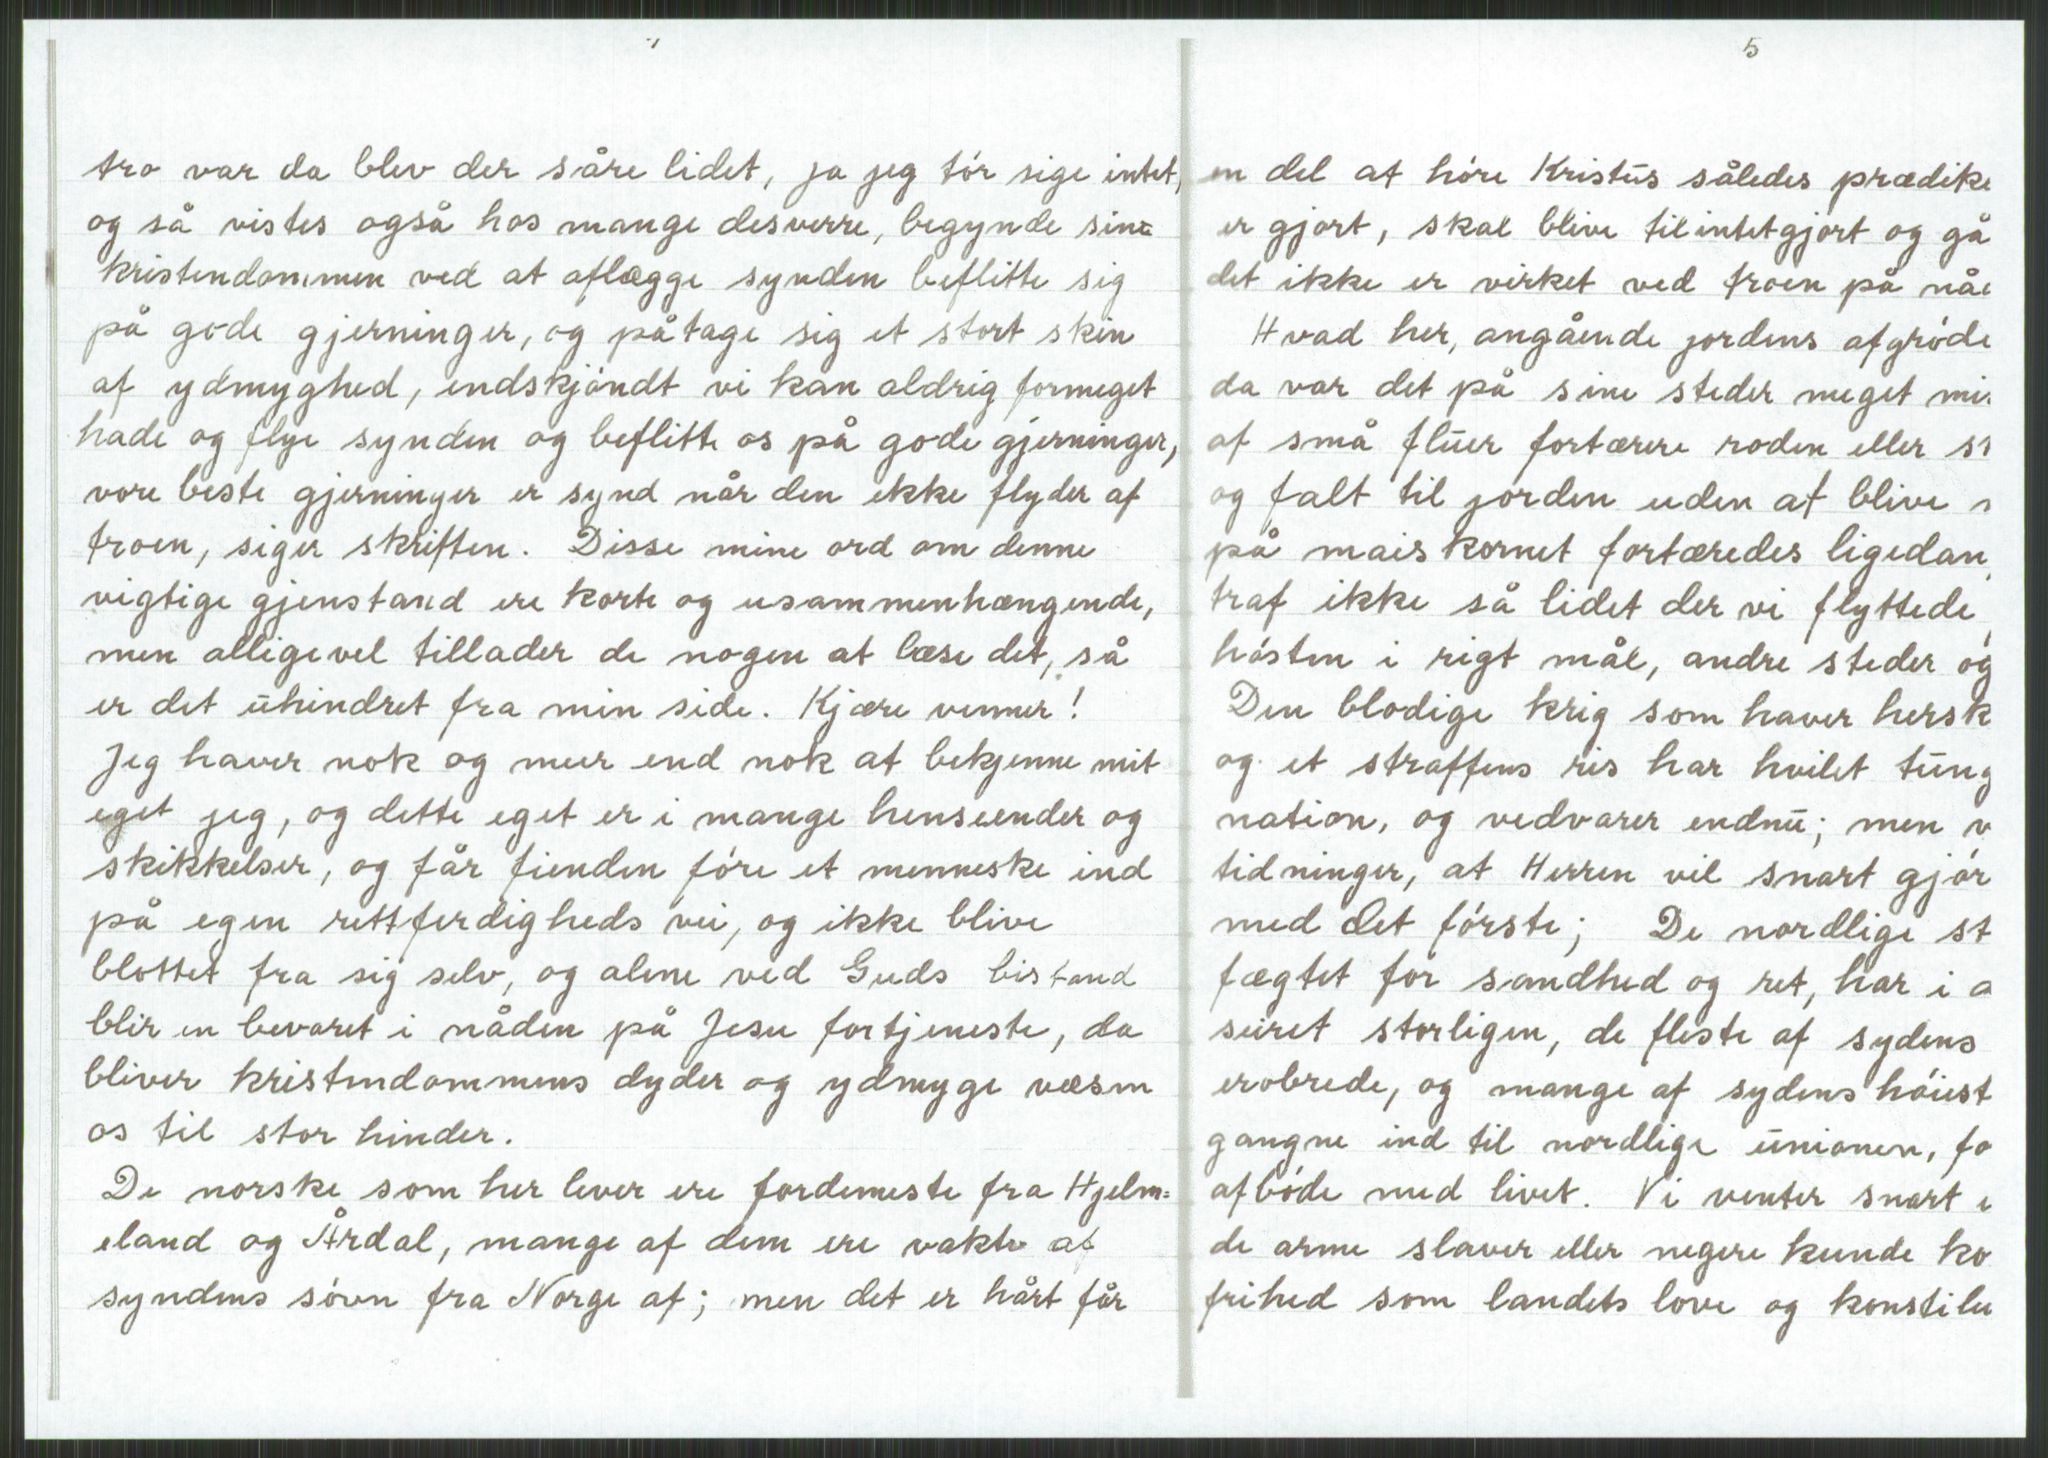 tro var da blev der såre lidet, ja jeg tór sige intet,
og så vistes også hos mange desverre, begynde sin=
kristendommen ved at aflægge synden beflitte sig
på gode gjerninger, og påtage sig et stort skin
af ydmyghed, endskjóndt vi kan aldrig formeget
hade og flye synden og beflitte os på gode gjerninger,
vore beste gjerninger er synd når den ikke flyder af
troen, siger skriften. Disse mine ord om denne
vigtige gjenstand ere korte og usammenhængende,
men alligevel tillader de nogen at læse det, så
er det ūhindret fra min side. Kjære venner!
Jeg haver nok og meer end nok at bekjenne mit
eget jeg, og dette eget er i mange henseender og
skikkelser, og får fienden fóre et menneske ind
på egen rettferdigheds vei, og ikke blive
blottet fra sig selv, og alene ved Guds bistand
blir en bevaret i nåden på Jesu fortjeneste, da
bliver kristendommens dyder og ydmyge væsen
os til stor hinder.
De norske som her lever ere fordemeste fra Hjelm=
eland og Årdal, mange af dem ere vakte af
syndens sóvn fra Norge af; men det er hårt før
5
en del at hóre Kristūs således prædike
er gjort, skal blive tilintetgjort og gå
det ikke er virket ved troen på nåe
Hvad her, angående jordens afgróde
da var det på sine steder meget mi
af små flūer fortærere roden eller s
og falt til jorden uden at blive
på maiskornet fortæredes ligedan
traf ikke så lidet der vi flyttede,
hósten i rigt mål, andre steder og
Den blodige krig som haver hersk
og et straffens ris har hvilet tūng
nation, og vedvarer endnū; men v
tidninger, at Herren vil snart gjór
med det fórste; De nordlige st
fægtet for sandhed og ret, har i a
seiret storligen, de fleste af sydens
erobrede, og mange af sydens hóiest
gangne ind til nordlige ūnionen, fo
afbóde med livet. Vi venter snart e
de arme slaver eller negere kunde ko
frihed som landets love og konstitu